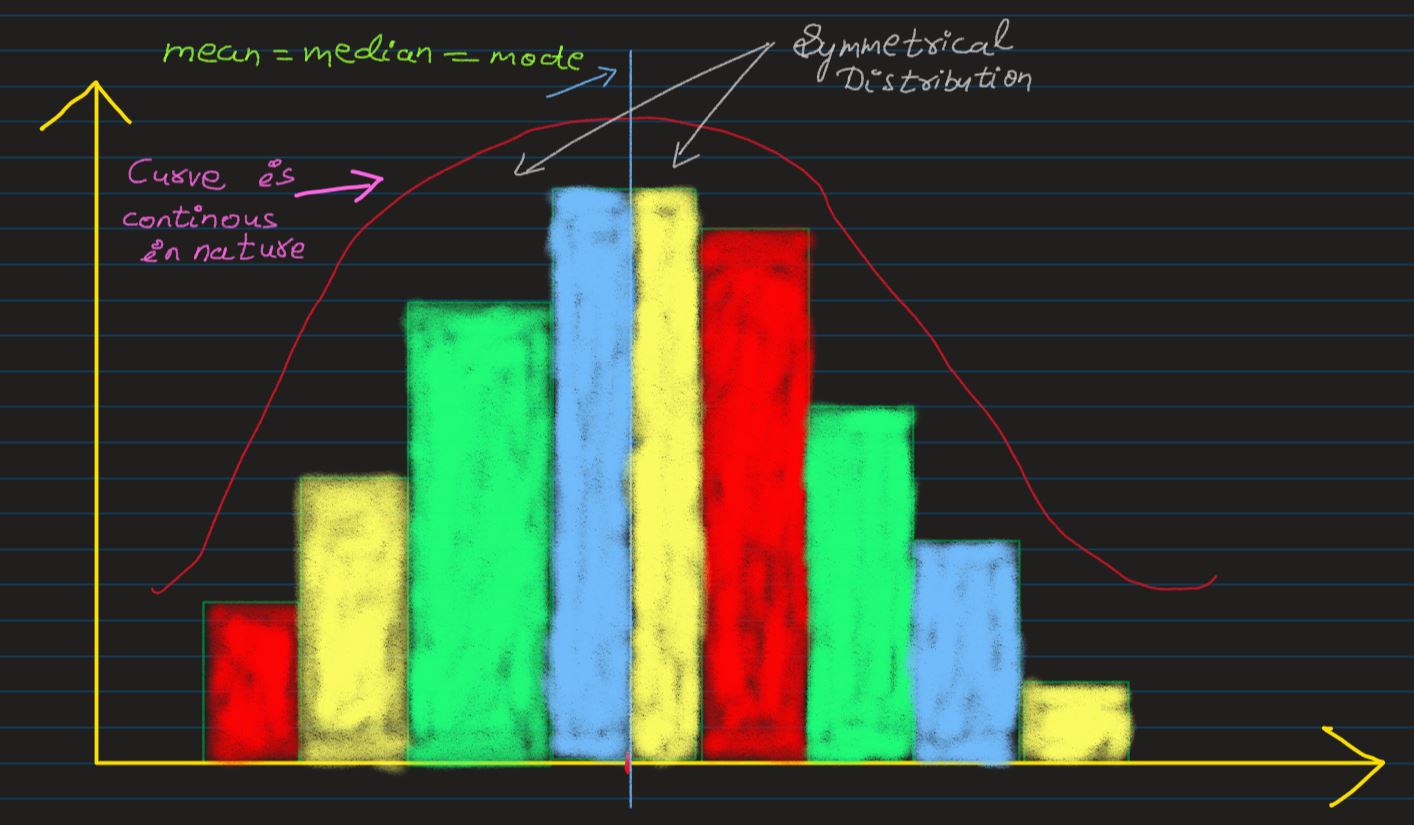 mean = median = mode
Symmetrical
Distribution
Curve is
continous
in nature